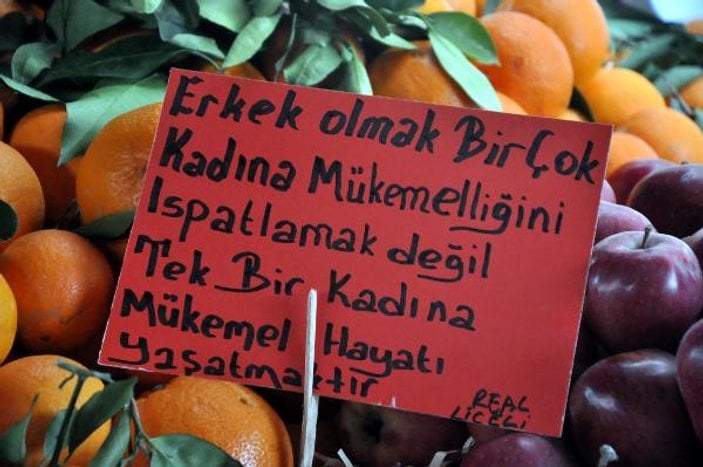 Erkek olmak Bir Çok
Kadına Mükemelliğini
Ispatlamak değil
Tek Bir Kadına
Mükemel Hayatı
yaşatmaktır
REAL
LİCELİ